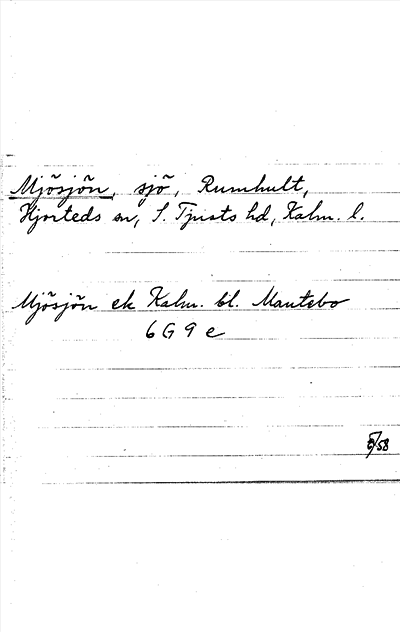 Mjösjön, sjö, Rumhult,
Hjorteds sn, S. Tjusts hd, Kalm. l.
Mjösjön ek Kalm. bl. Mantebo
6 G 9 e
/58